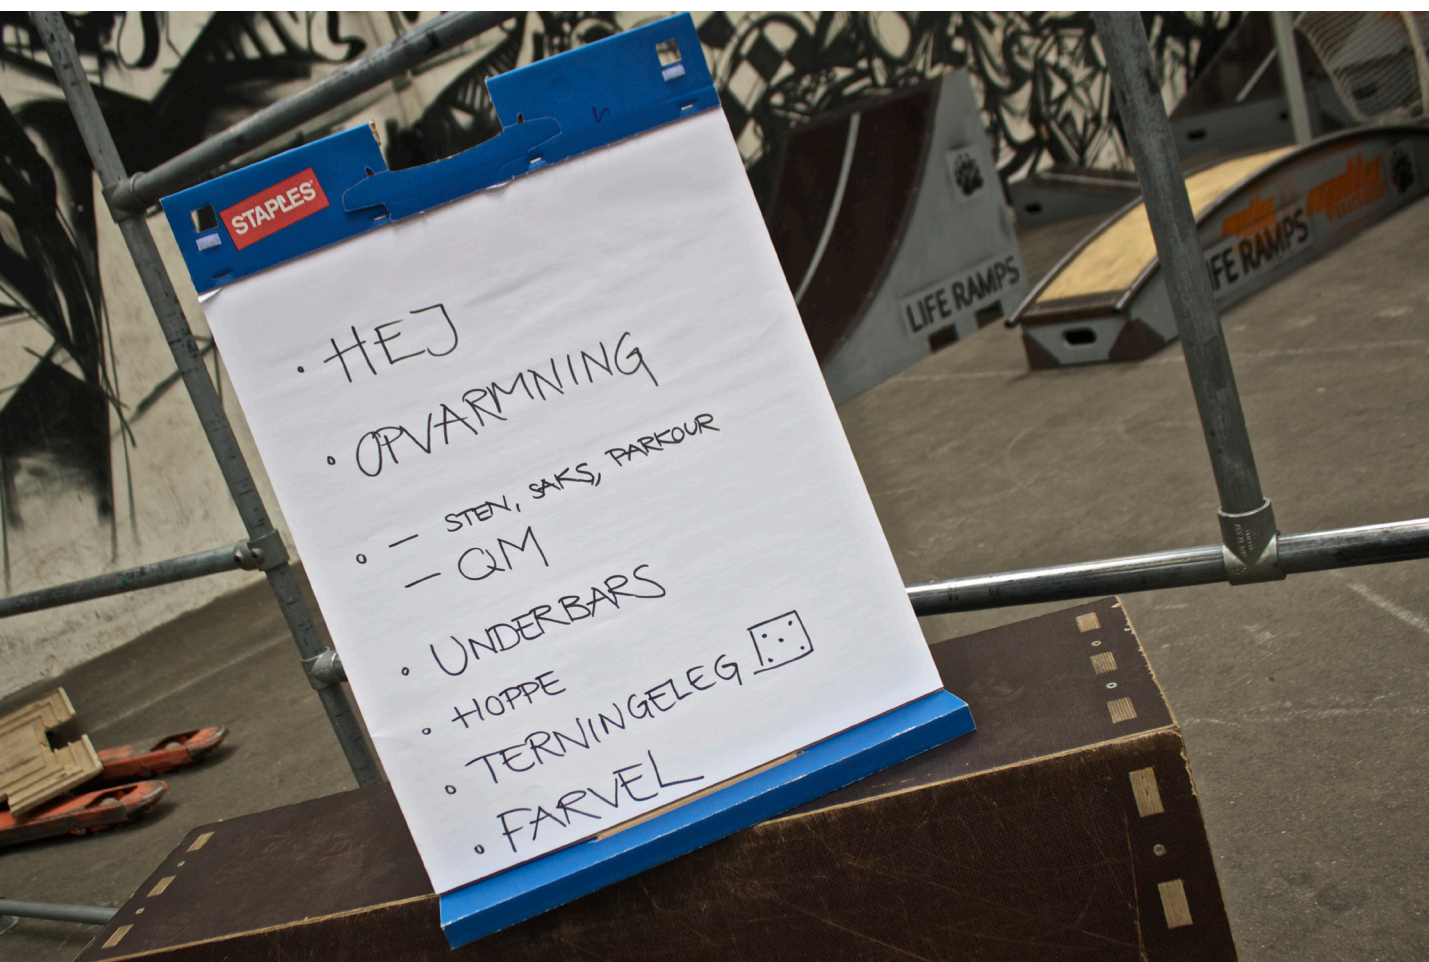 STAPLES
• HEJ
• OPVARMNING
• – STEN, SAKS, PARKOUR
– QM
• UNDERBARS
• HOPPE
• TERNINGELEG
• FARVEL
LIFE RAMPS
IFE RAMPS